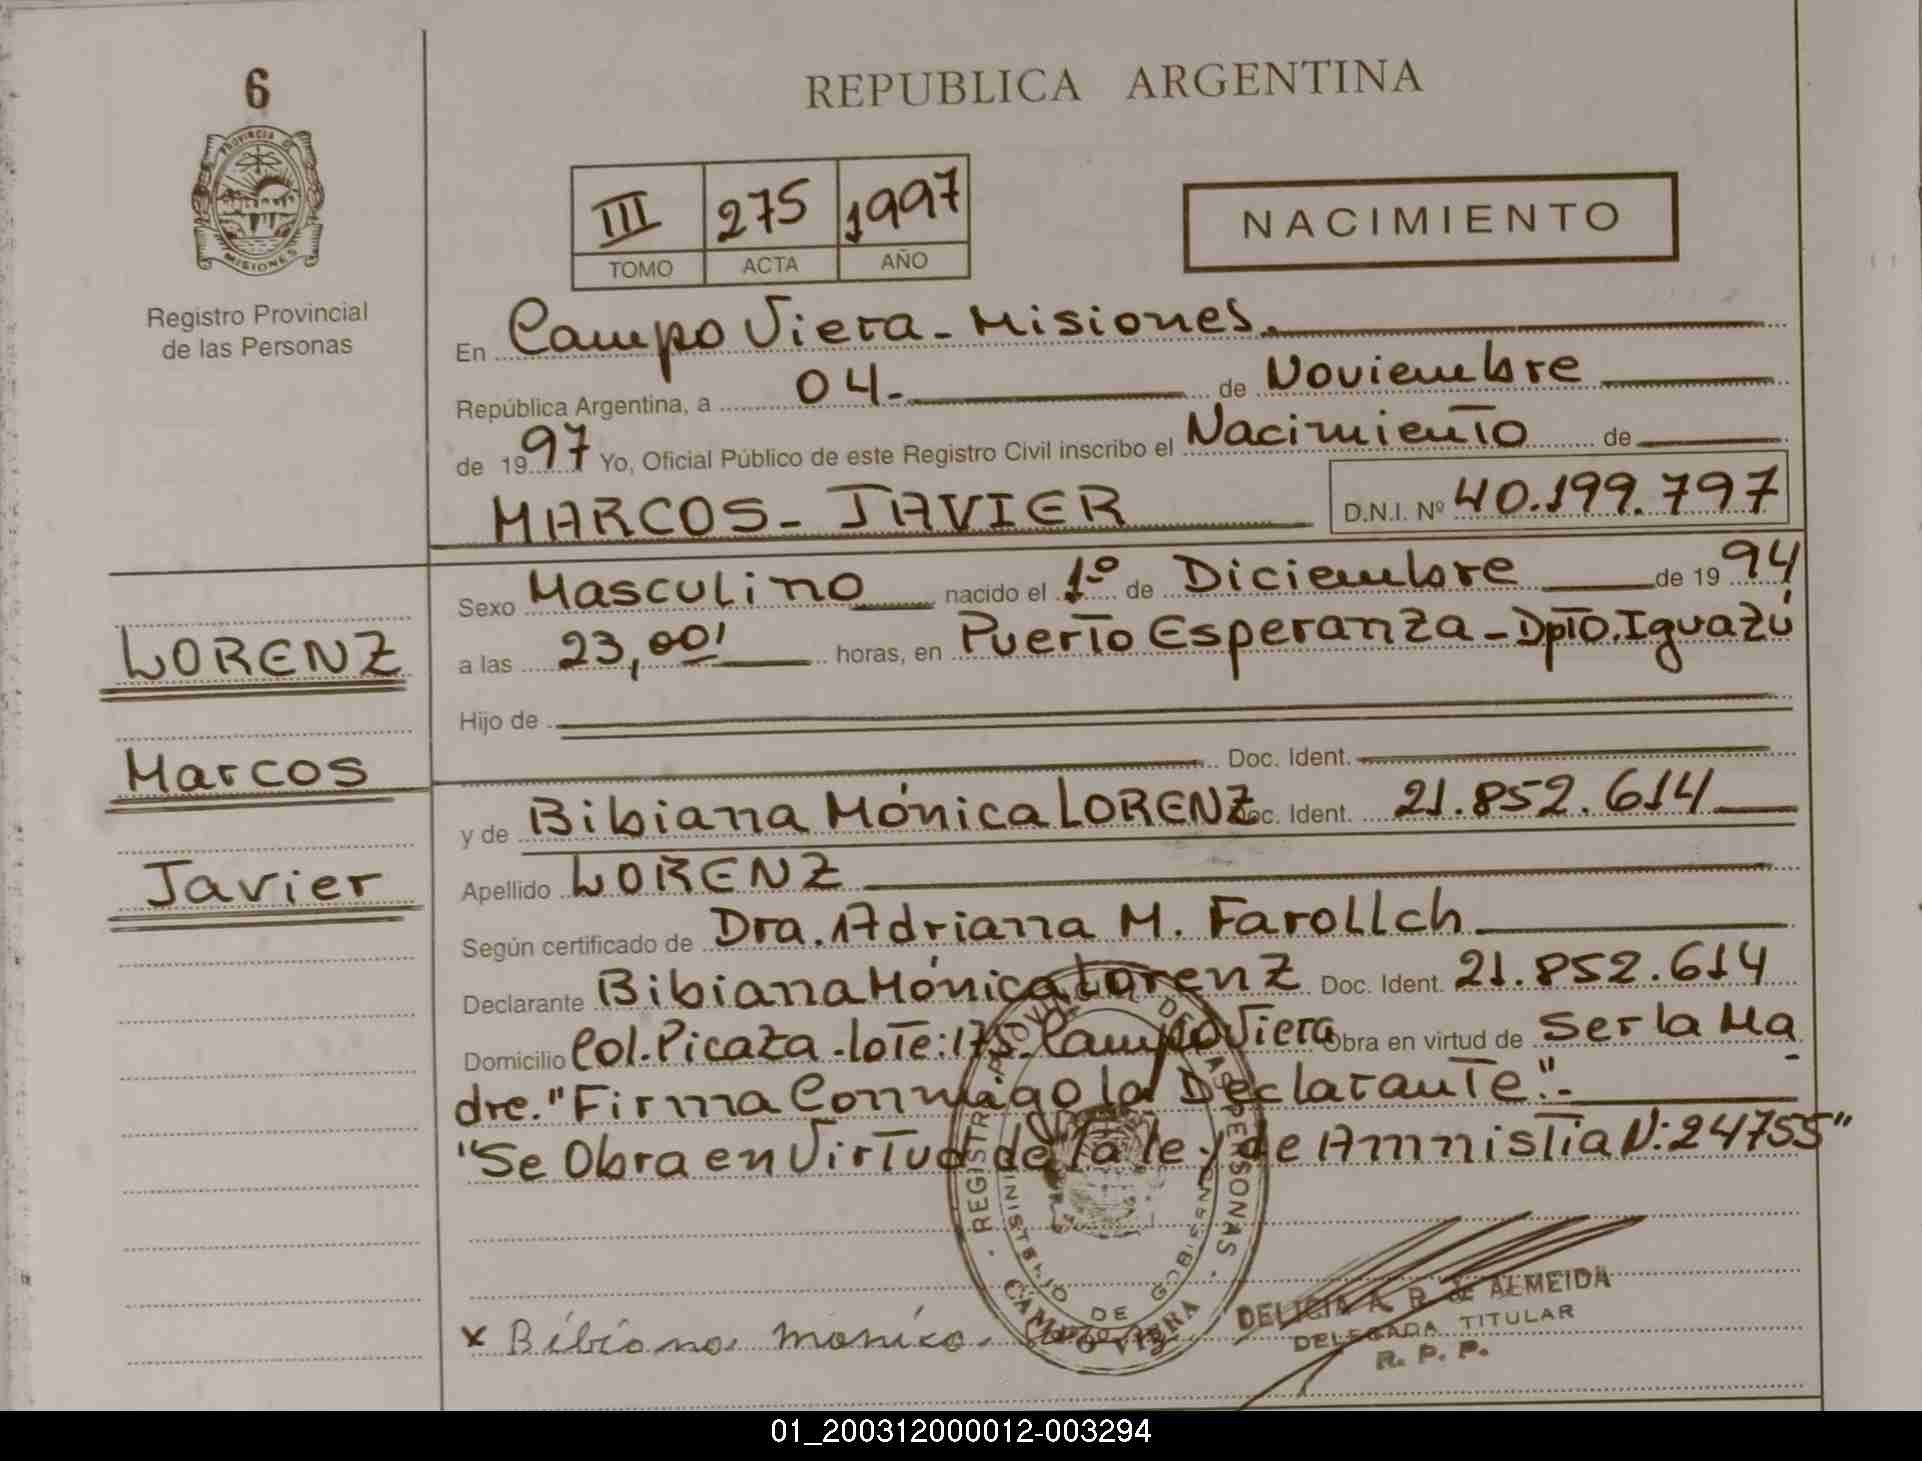 6
PROVINCIA DE
MISIONES
Registro Provincial
de las Personas
LORENZ
Marcos
Javier
REPUBLICA ARGENTINA
III 275 1997
TOMO ACTA AÑO
NACIMIENTO
En Campo Viera - Misiones.
República Argentina, a 04.- de Noviembre
de 1997 Yo, Oficial Público de este Registro Civil inscribo el Nacimiento de
MARCOS - JAVIER D.N.I. Nº 40.199.797
Sexo Masculino nacido el 1º de Diciembre de 1994
a las 23,00' horas, en Puerto Esperanza - Dpto. Iguazú
Hijo de
Doc. Ident.
y de Bibiana Mónica LORENZ Doc. Ident. 21.852.614
Apellido LORENZ
Según certificado de Dra. Adriana M. Farollch
Declarante Bibiana Mónica Lorenz Doc. Ident. 21.852.614
Domicilio Col. Picaza - lote: 175 - Campo Viera Obra en virtud de Ser la Ma
dre. "Firma Conmigo la Declarante".-
"Se Obra en Virtud de la ley de Amnistia N: 24755"
REGISTRO PROVINCIAL DE LAS PERSONAS
MINISTERIO DE GOBIERNO
CAMPO VIERA
x Bibiana monica
DELICIA A. R. de ALMEIDA
DELEGADA TITULAR
R. P. P.
01_200312000012-003294